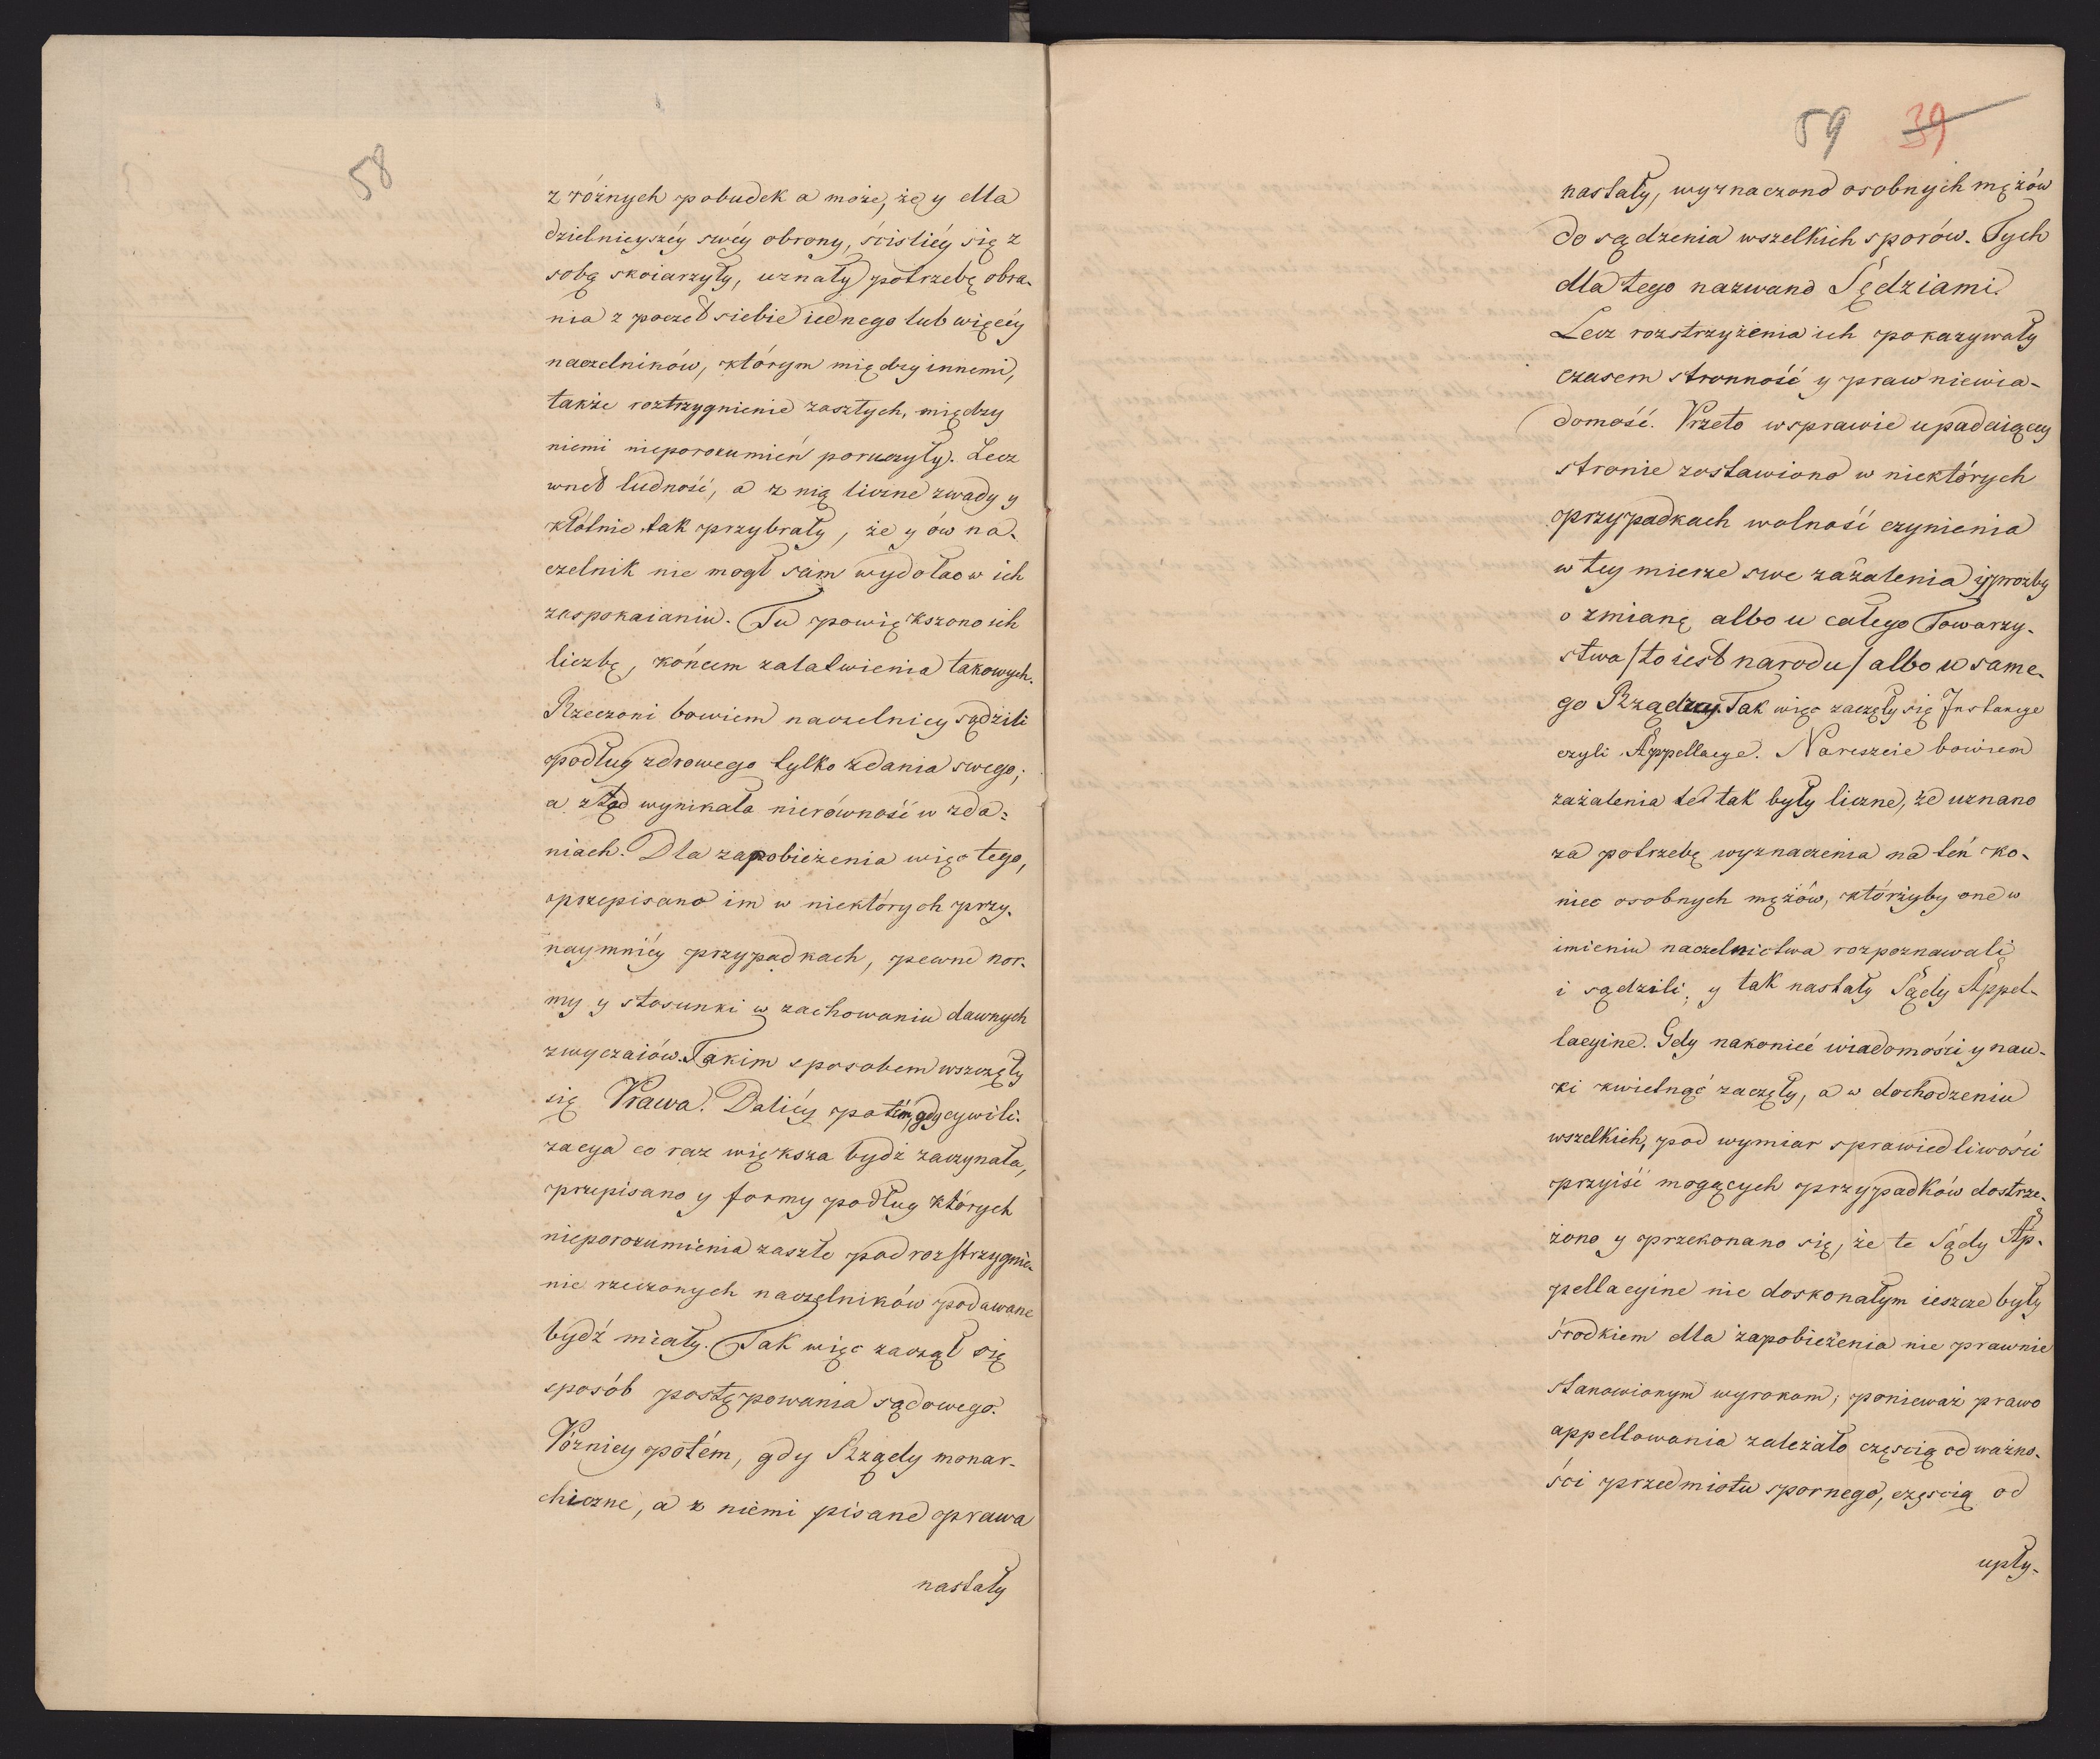 58
z różnych pobudek a może, że y dla
dzielnieyszéy swéy obrony, ściśliéy się z
sobą skoiarzyły, uznały potrzebę obra-
nia z poczet siebie iednego lub więcéy
naczelników, którym między innemi,
także roztrzygnienie zaszłych, między
niemi nieporozumień poruczyły. Lecz
wnet ludność, a z nią liczne zwady y
kłótnie tak przybrały, że y ów na-
czelnik nie mogł sam wydołać w ich
zaspokaianiu. Tu powiększono ich
liczbę, końcem załatwienia takowych.
Rzeczoni bowiem naczelnicy sądzili
podług zdrowego tylko zdania swego;
a ztąd wynikała nierówność w zda=
niach. Dla zapobieżenia więc tego,
przepisano im w niektórych przy-
naymniéy przypadkach, pewne nor-
my y stosunki w zachowaniu dawnych
zwyczaiów. Takim sposobem wszczęły
się Prawa. Daliéy potém, gdy cywili-
zacya co raz większa bydź zaczynała,
przepisano y formy podług których
nieporozumienia zaszłe pod rozstrzygnie-
nie rzeczonych naczelników podawane
bydź miały. Tak więc zaczął się
sposób postępowania sądowego.
Pózniey potém, gdy Rządy monar-
chiczne, a z niemi pisane prawa
nastały
59 39
nastały, wyznaczono osobnych mężów
do sądzenia wszelkich sporów. Tych
dla tego nazwano Sędziami.
Lecz rozstrzyżenia ich pokazywały
czasem stronność y praw niewia-
domość. Przeto w sprawie upadaiącey
stronie zostawiono w niektórych
przypadkach wolność czynienia
w tey mierze swe zażalenia y prozby
o zmianę albo u całego Towarzy-
stwa /to iest narodu/ albo u same-
go Rządzcy. Tak więc zaczęły się Instancye
czyli Appellacye. Nareszcie bowiem
zażalenia te tak były liczne, że uznano
za potrzebę wyznaczenia na ten ko-
niec osobnych mężów, którzyby one w
imieniu naczelnictwa rozpoznawali
i sądzili, y tak nastały Sądy Appel-
lacyine. Gdy nakoniec wiadomości y nau-
ki kwitnąć zaczęły, a w dochodzeniu
wszelkich, pod wymiar sprawiedliwości
przyiść mogących przypadków dostrze-
żono y przekonano się, że te Sądy Ap-
pellacyine nie doskonałym ieszcze były
środkiem dla zapobieżenia nie prawnie
stanowionym wyrokom; ponieważ prawo
appellowania zależało częścią od ważno-
ści przedmiotu spornego, częścią od
upły-